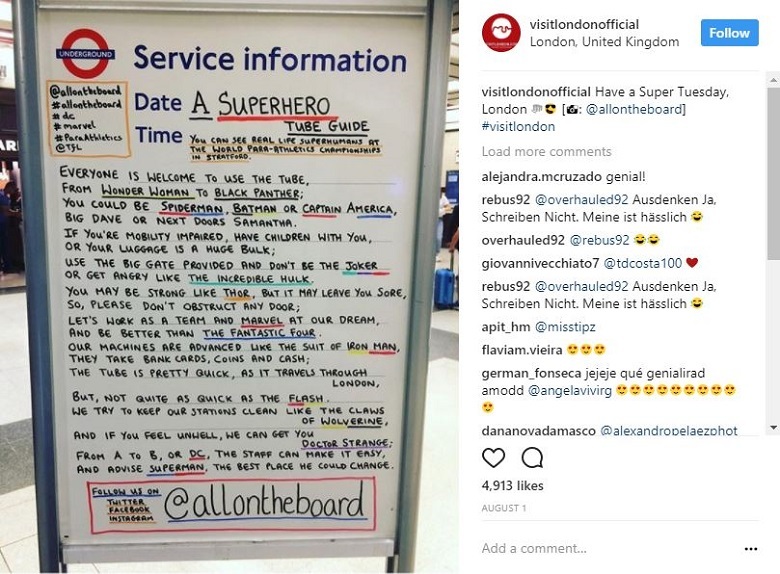 UNDERGROUND
Service information
@allontheboard
#allontheboard
#dc
#marvel
#ParaAthletics
@TfL
Date A SUPERHERO
TUBE GUIDE
Time YOU CAN SEE REAL LIFE SUPERHUMANS AT
THE WORLD PARA-ATHLETICS CHAMPIONSHIPS
IN STRATFORD.
EVERYONE IS WELCOME TO USE THE TUBE,
FROM WONDER WOMAN TO BLACK PANTHER;
YOU COULD BE SPIDERMAN, BATMAN OR CAPTAIN AMERICA,
BIG DAVE OR NEXT DOORS SAMANTHA.
IF YOU'RE MOBILITY IMPAIRED, HAVE CHILDREN WITH YOU,
OR YOUR LUGGAGE IS A HUGE BULK;
USE THE BIG GATE PROVIDED AND DON'T BE THE JOKER
OR GET ANGRY LIKE THE INCREDIBLE HULK.
YOU MAY BE STRONG LIKE THOR, BUT IT MAY LEAVE YOU SORE,
SO, PLEASE DON'T OBSTRUCT ANY DOOR;
LET'S WORK AS A TEAM AND MARVEL AT OUR DREAM,
AND BE BETTER THAN THE FANTASTIC FOUR.
OUR MACHINES ARE ADVANCED LIKE THE SUIT OF IRON MAN,
THEY TAKE BANK CARDS, COINS AND CASH;
THE TUBE IS PRETTY QUICK, AS IT TRAVELS THROUGH
LONDON,
BUT, NOT QUITE AS QUICK AS THE FLASH.
WE TRY TO KEEP OUR STATIONS CLEAN LIKE THE CLAWS
OF WOLVERINE,
AND IF YOU FEEL UNWELL, WE CAN GET YOU
DOCTOR STRANGE;
FROM A TO B, OR DC, THE STAFF CAN MAKE IT EASY,
AND ADVISE SUPERMAN, THE BEST PLACE HE COULD CHANGE.
FOLLOW US ON
TWITTER
FACEBOOK
INSTAGRAM
@allontheboard
visitlondonofficial
London, United Kingdom
Follow
visitlondonofficial Have a Super Tuesday,
London [📷: @allontheboard]
#visitlondon
Load more comments
alejandra.mcruzado genial!
rebus92 @overhauled92 Ausdenken Ja,
Schreiben Nicht. Meine ist hässlich 😂
overhauled92 @rebus92 😂😂
giovannivecchiato7 @tdcosta100 ❤
rebus92 @overhauled92 Ausdenken Ja,
Schreiben Nicht. Meine ist hässlich 😂
apit_hm @misstipz
flaviam.vieira 😍😍😍
german_fonseca jejeje qué genialirad
amodd @angelavivirg 😍😍😍😍😍😍😍😍😍
😍
dananovadamasco @alexandropelaezphot
4,913 likes
AUGUST 1
Add a comment...